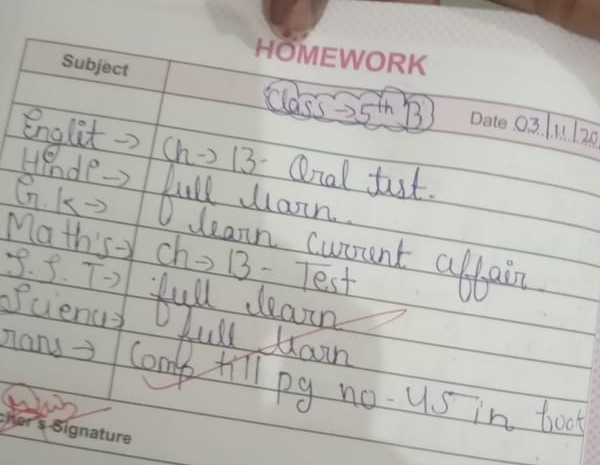 HOMEWORK
Subject
Class → 5th B Date 03/11/20
Englit → Ch → 13 - Oral test.
Hinde → full learn
G.K → learn current affair
Math's → Ch → 13 - Test
S.S.T → full learn
Science → full learn
rans → Comp till pg no - 45 in book
cher's Signature